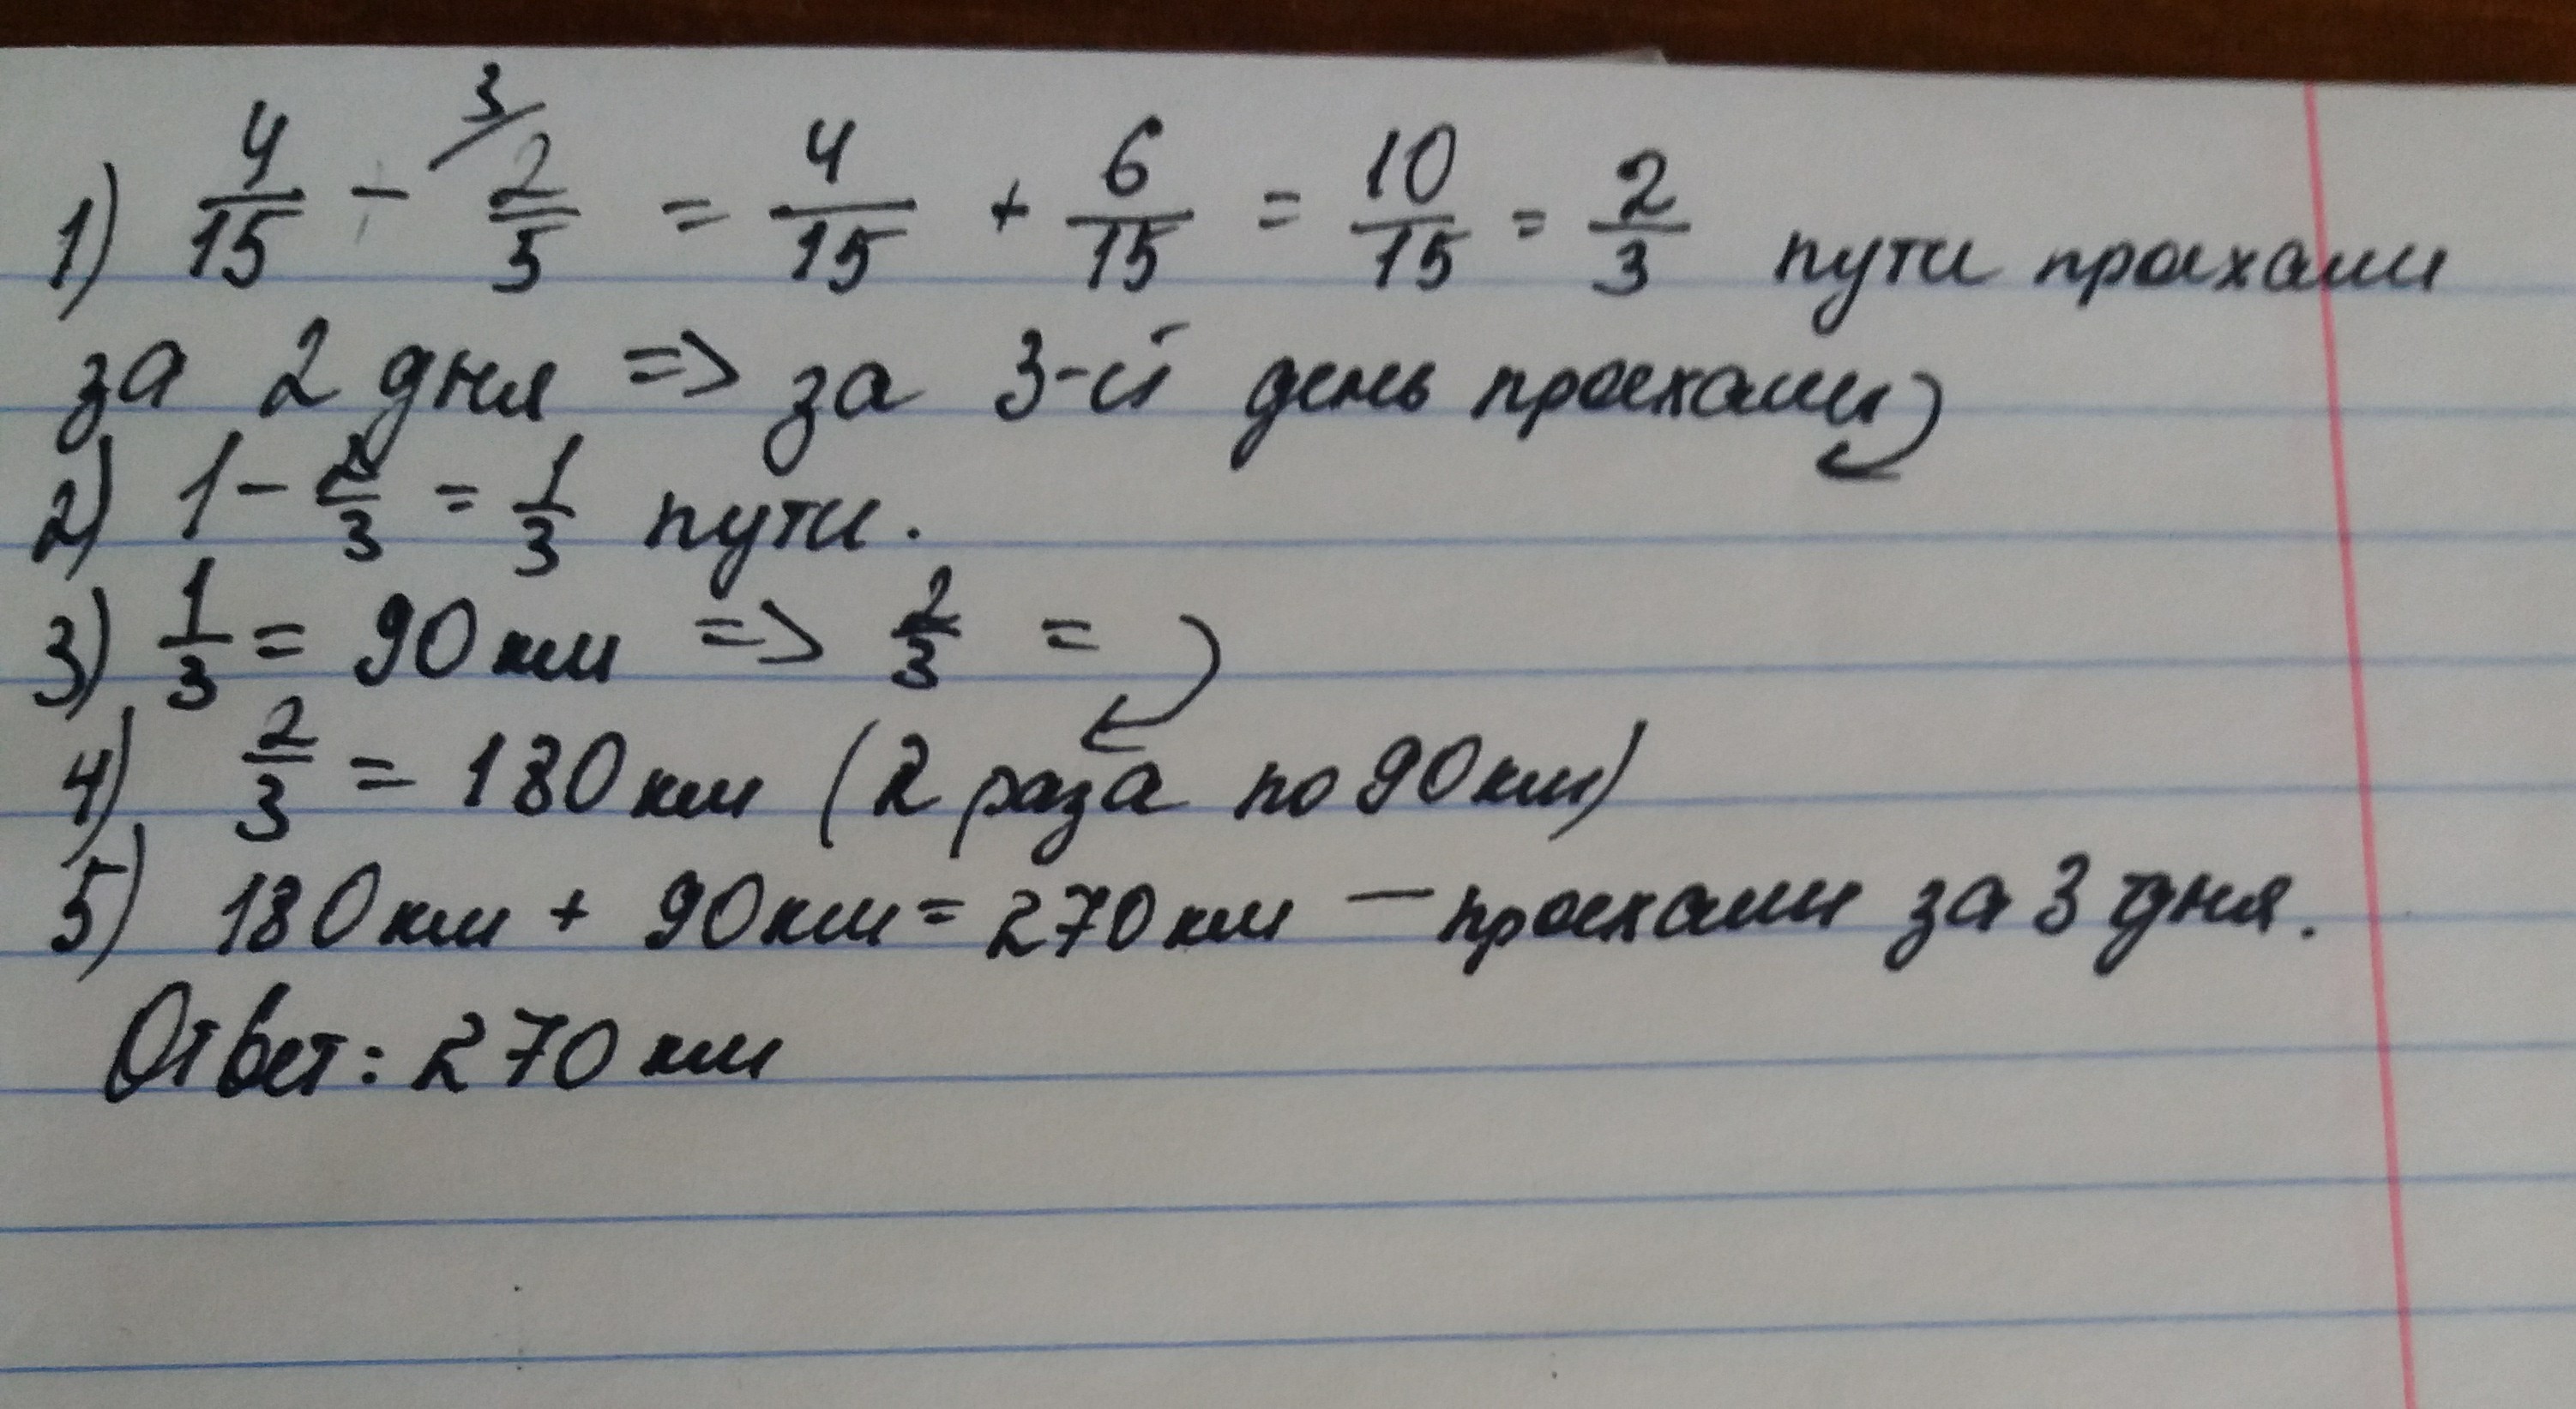 1) 4/15 - 3/ 2/5 = 4/15 + 6/15 = 10/15 = 2/3 пути проехали
за 2 дня => за 3-й день проехали
2) 1 - 2/3 = 1/3 пути.
3) 1/3 = 90 км => 2/3 =
4) 2/3 = 180 км (2 раза по 90 км)
5) 180 км + 90 км = 270 км — проехали за 3 дня.
Ответ: 270 км